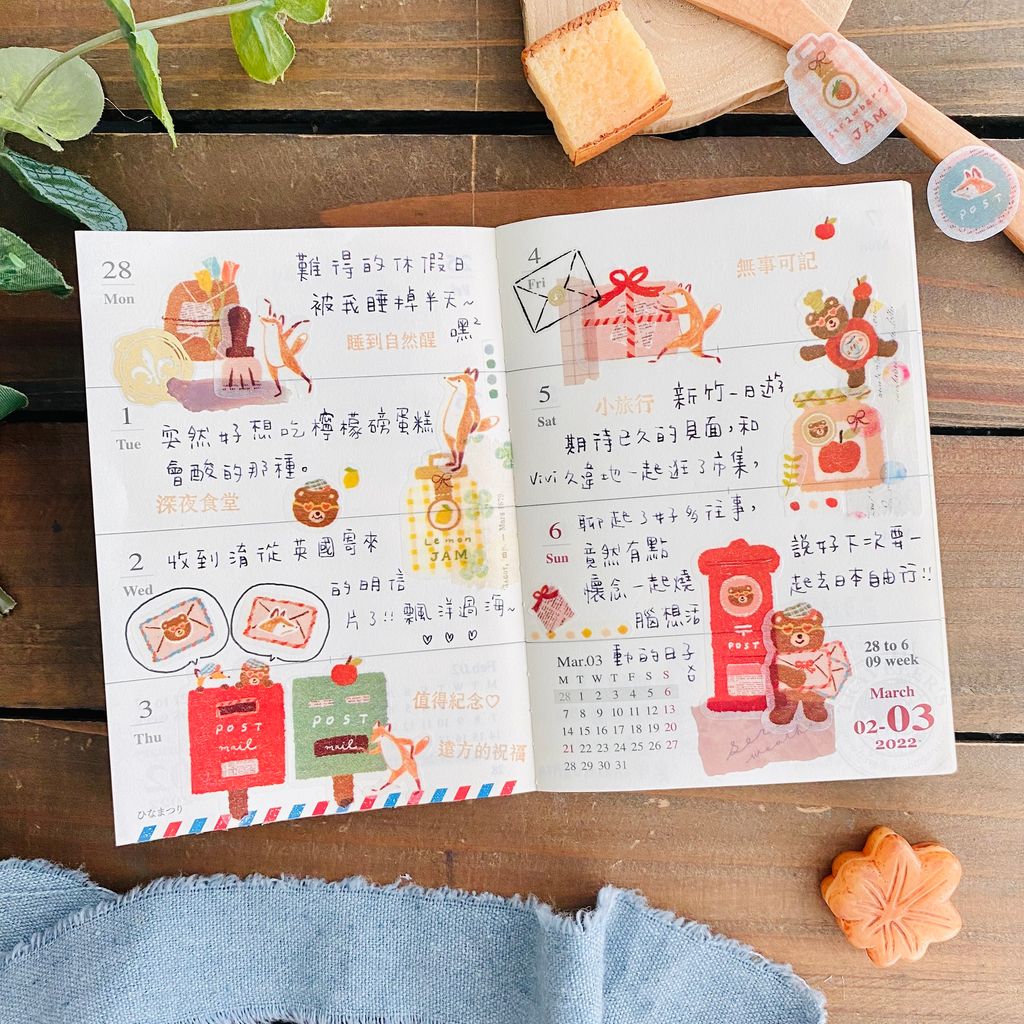 28
Mon
難得的休假日
被我睡掉半天~
嘿²
睡到自然醒
1
Tue
突然好想吃檸檬磅蛋糕
會酸的那種。
深夜食堂
Lemon
JAM
2
Wed
收到淯從英國寄來
的明信
片了!!飄洋過海~
♡ ♡ ♡
3
Thu
POST
mail
POST
mail
值得紀念♡
遠方的祝福
ひなまつり
4
Fri
無事可記
5
Sat
小旅行
新竹一日遊
期待已久的見面,和
ViVi久違地一起逛了市集,
6
Sun
聊起了好多往事,
竟然有點
懷念一起燒
腦想活
動的日子
說好下次要一
起去日本自由行!!
POST
Mar.03
M T W T F S S
28 1 2 3 4 5 6
7 8 9 10 11 12 13
14 15 16 17 18 19 20
21 22 23 24 25 26 27
28 29 30 31
28 to 6
09 week
March
02-03
2022
strawberry
JAM
POST